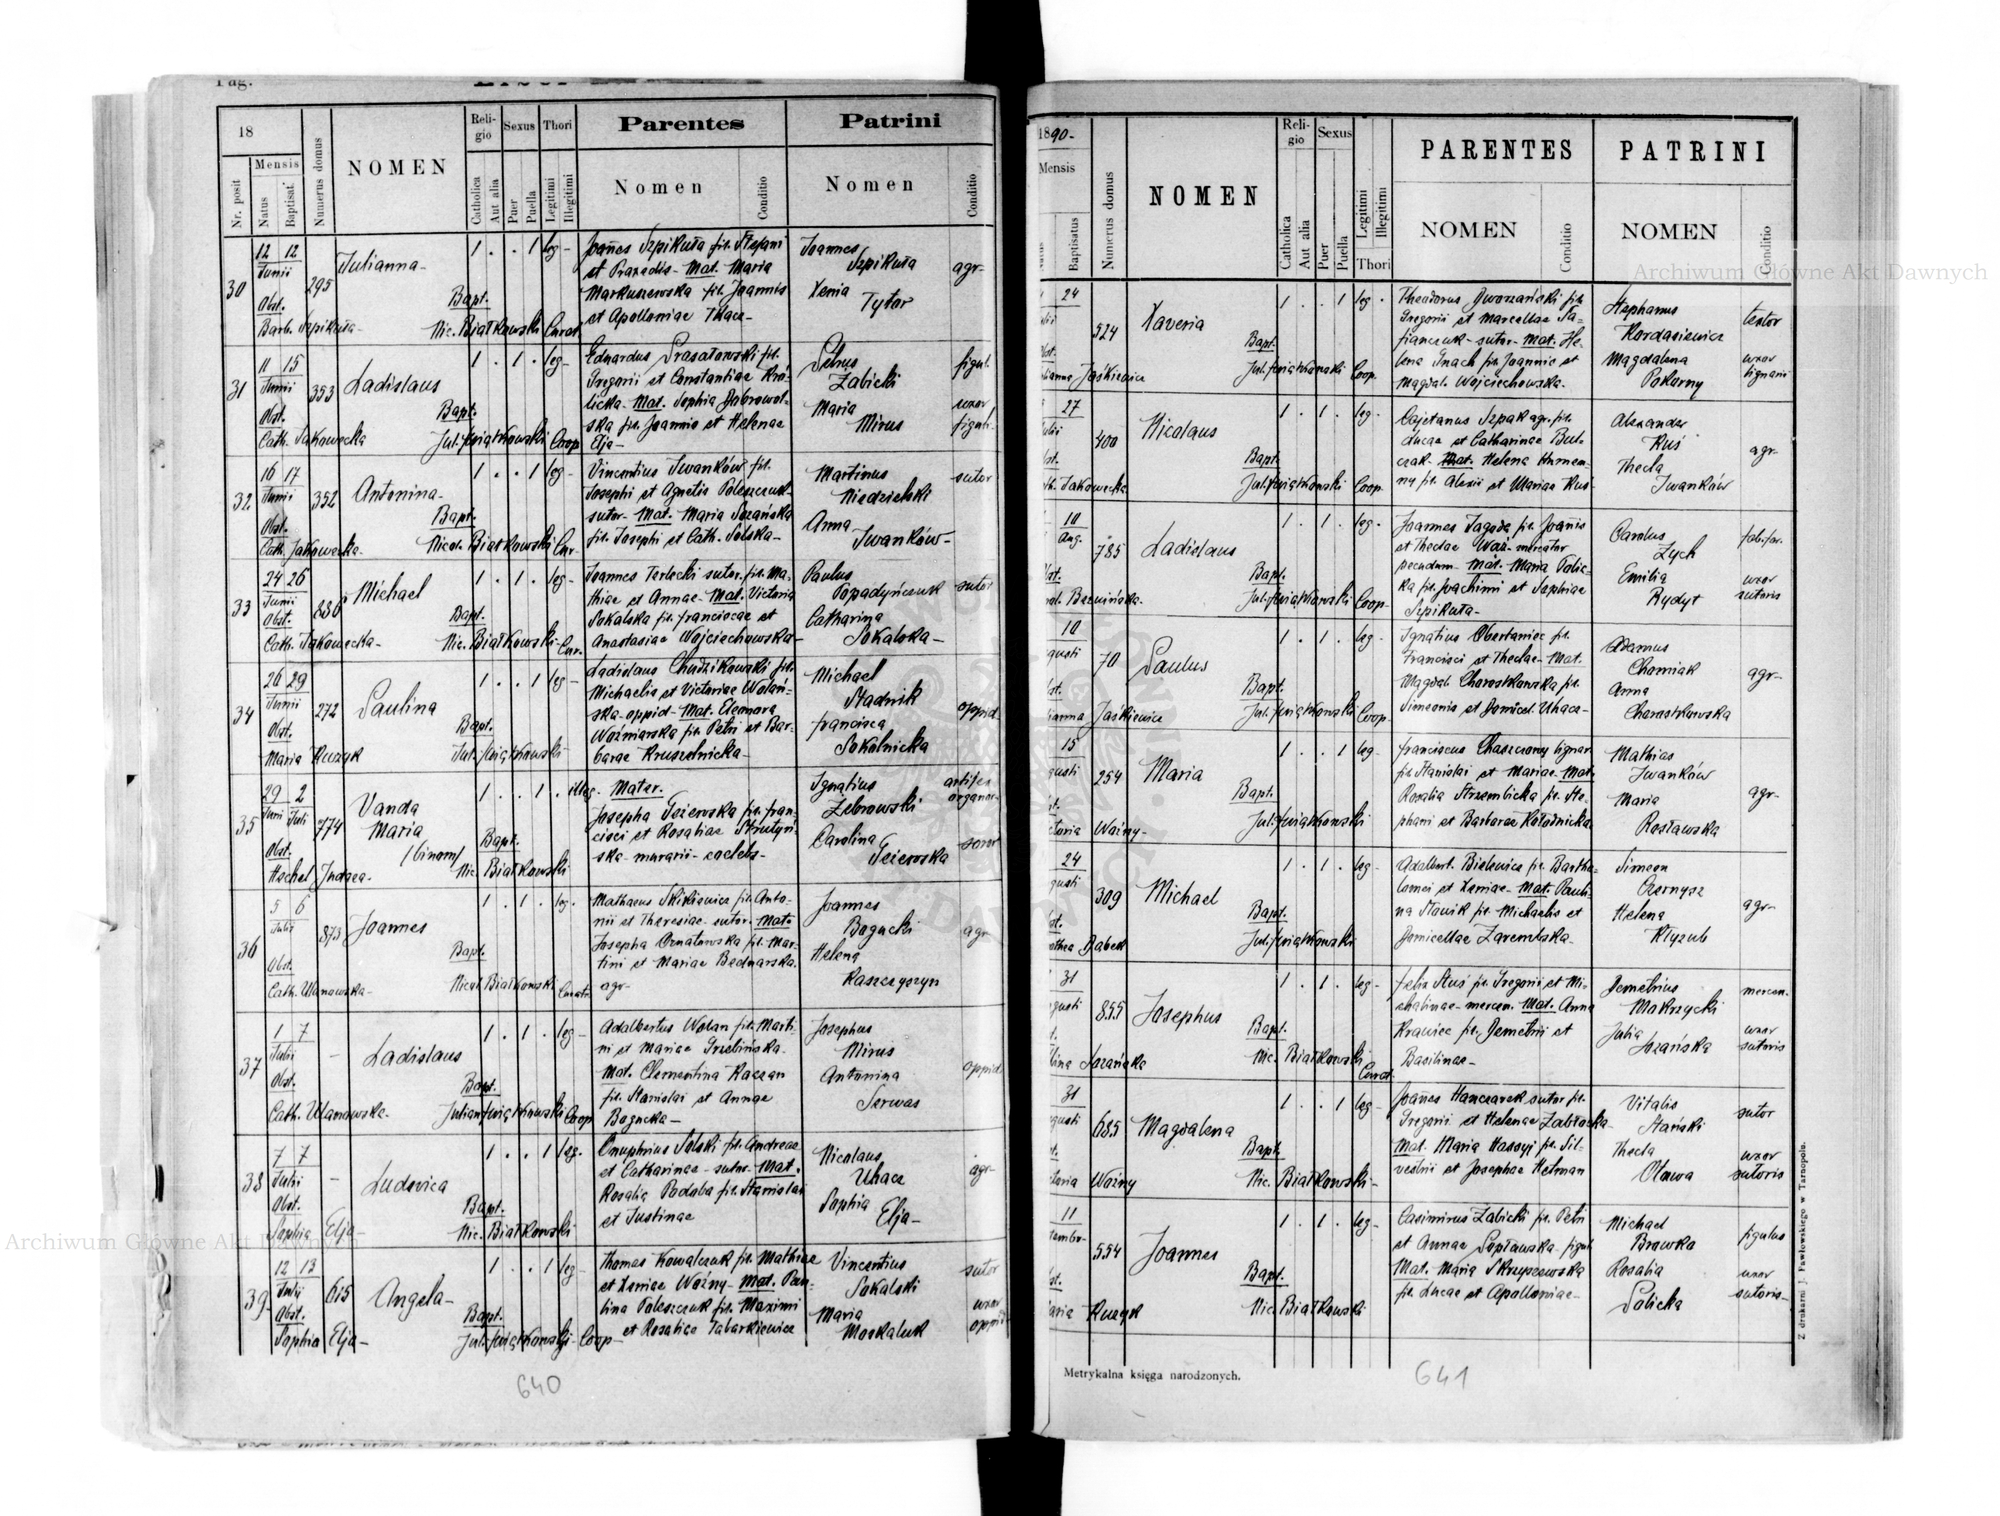 Pag.
18
Nr. posit
Mensis
Natus
Baptisat.
Numerus domus
NOMEN
Religio
Catholica
Aut alia
Sexus
Puer
Puella
Thori
Legitimi
Illegitimi
Parentes
Nomen
Conditio
Patrini
Nomen
Conditio
30
12 12
Junii
295
Julianna-
1 . . 1 leg-
Obst.
Barb. Szpikuła-
Bapt.
Nic. Białkowski Curat.
Joañes Szpikuła fil. Stefani
et Praxedis- Mat. Maria
Markuszewska fil. Joannis
et Apolloniae Tkacz-
Joannes
Szpikuła
Xenia
Tytor
agr-
31
11 15
Junii
353
Ladislaus
1 . 1 . leg-
Obst.
Cath. Jakowecka
Bapt.
Jul. Kwiatkowski Coop
Eduardus
Gregorii et Constantiae Kró-
licka- Mat. Sophia Dąbrowol-
ska fil. Joannis et Helenae
Elja-
Petrus
Zalicki
Maria
Mirus
figul.
uxor
figuli-
32
16 17
Junii
352
Antonina-
1 . . 1 leg-
Obst.
Cath. Jakowecka-
Bapt.
Nicol. Białkowski Cur-
Vincentius Iwanków fil.
Josephi et Agnetis Poleszczuk-
sutor- Mat. Maria Sozańska
fil. Josephi et Cath. Solska-
Martinus
Niedzielski
Anna
Iwanków-
sutor
33
24 26
Junii
886
Michael
1 . 1 . leg-
Obst.
Cath. Jakowecka-
Bapt.
Nic. Białkowski- Cur.
Joannes Terlecki sutor. fil. Ma-
thiae et Annae- Mat. Victoria
Sokalska fil. Franciscae et
Anastasiae Wojciechowska-
Paulus
Popadyńczuk
Catharina
Sokalska-
sutor
34
26 29
Junii
272
Paulina
1 . . 1 leg-
Obst.
Maria Huczyk
Bapt.
Jul. Kwiatkowski
Ladislaus Chudzikowski fil.
Michaelis et Victoriae Wolań-
ska-oppid- Mat. Eleonora
Woźniarska fil. Petri et Bar-
barae Kruszelnicka-
Michael
Stadnik
Francisca
Sokolnicka
oppid
35
29 2
Junii Julii
774
Vanda
Maria
/binom/
1 . . 1 . illeg.
Obst.
Hechel Judaea-
Bapt.
Nic. Białkowski
Mater.
Josepha Jezierska fil. Fran-
cisci et Rosaliae Strutyń-
ska- murarii- caelebs-
Ignatius
Żebrowski
Carolina
Jezierska
artifex
organor-
soror
36
5 6
Julii
873
Joannes
1 . 1 . leg.
Obst.
Cath. Ulanowska-
Bapt.
Nicol Białkowski Curat.
Mathaeus Skikiewicz fil. Anto-
nii et Theresiae- sutor- Mat.
Josepha Ornatowska fil. Mar-
tini et Mariae Bednarska.
agr-
Joannes
Bogucki
Helena
Kaszczyszyn
agr-
37
1 7
Julii
-
Ladislaus
1 . 1 . leg-
Obst.
Cath. Ulanowska-
Bapt.
Julian Kwiatkowski Coop
Adalbertus Wolan fil. Marti-
ni et Mariae Grzelińska-
Mat. Clementina Kaczan
fil. Stanislai et Annae
Bogucka-
Josephus
Mirus
Antonina
Serwas
oppid
38
7 7
Julii
-
Ludovica
1 . . 1 leg.
Obst.
Sophia Elja-
Bapt.
Nic. Białkowski
Onuphrius Solski fil. Andreae
et Catharinae- sutor- Mat.
Rosalia Podoba fil. Stanislai
et Justinae
Nicolaus
Uhacz
Sophia
Elja-
agr-
39
12 13
Julii
615
Angela-
1 . . 1 leg-
Obst.
Sophia Elja-
Bapt.
Jul. Kwiatkowski- Coop-
Thomas Kowalczuk fil. Mathiae
et Xeniae Woźny- Mat. Pau-
lina Poleszczuk fil. Maximi
et Rosaliae Tabarkiewicz
Vincentius
Sokalski
Maria
Moskaluk
sutor
uxor
oppid
640
1890-
Mensis
Baptisatus
Numerus domus
NOMEN
Religio
Catholica
Aut alia
Sexus
Puer
Puella
Legitimi
Illegitimi
Thori
PARENTES
NOMEN
Conditio
PATRINI
NOMEN
Conditio
24
524
Xaveria
1 . . 1 leg.
Jaskiewicz
Bapt.
Jul. Kwiatkowski Coop.
Theodorus Dworzański fil.
Gregorii et Marcellae Sa-
fianczuk- sutor- Mat. He-
lena Gnach fil. Joannis et
Magdal. Wojciechowska-
Stephanus
Kordasiewicz
Magdalena
Pokorny
textor
uxor
lignarii
27
400
Nicolaus
1 . 1 . leg.
Jakowecka
Bapt.
Jul. Kwiatkowski Coop-
Cajetanus Szpak agr. fil.
Lucae et Catharinae But-
czak- Mat. Helena Humen-
ny fil. Alexii et Mariae Kuś-
Alexander
Kuś
Thecla
Iwanków
agr-
10
Aug.
785
Ladislaus
1 . 1 . leg.
Bapt.
Jul. Kwiatkowski Coop-
Joannes Jagoda fil. Joañis
et Theclae Woś- mercator
pecudum- Mat. Maria Polic-
ka fil. Joachimi et Sophiae
Szpikuła-
Carolus
Zych
Emilia
Rydyt
fab. fer.
uxor
sutoris
10
gusti
70
Paulus
1 . 1 . leg-
Jaskiewicz
Bapt.
Jul. Kwiatkowski Coop-
Ignatius Obertaniec fil.
Francisci et Theclae- Mat.
Magdal. Chorostkowska fil.
Simeonis et Domicel. Uhacz-
Adamus
Chomiak
Anna
Chorostkowska
agr-
15
gusti
254
Maria
1 . . 1 leg-
Woźny-
Bapt.
Jul. Kwiatkowski
Franciscus Chaszczowy lignar
fil. Stanislai et Mariae- Mat.
Rosalia Strzembicka fil. Ste-
phani et Barbarae Kołodnicka
Mathias
Iwanków
Maria
Rosławska
agr-
24
gusti
309
Michael
1 . 1 . leg-
Babek
Bapt.
Jul. Kwiatkowski
Adalbert. Bielewicz fil. Bartho-
lomei et Xeniae- Mat. Pauli-
na Sławik fil. Michaelis et
Domicellae Zarembska-
Simeon
Czernysz
Helena
Kłyzub
agr-
31
gusti
855
Josephus
1 . 1 . leg-
Sozańska
Bapt.
Nic. Białkowski Curat.
Felix Stuś fil. Gregorii et Mi-
chalinae- mercen. Mat. Anna
Krawiec fil. Demetrii et
Basilinae-
Demetrius
Mokrzycki
Julia
Sozańska
mercen-
uxor
sutoris
31
gusti
685
Magdalena
1 . . 1 leg-
Woźny
Bapt.
Nic. Białkowski-
Joañes Hanczarek sutor fil.
Gregorii et Helenae Zabłocka-
Mat. Maria Hassyj fil. Sil-
vestrii et Josephae Hetman
Vitalis
Stański
Thecla
Olowa
sutor
uxor
sutoris
11
554
Joannes
1 . 1 . leg-
Huczyk
Bapt.
Nic. Białkowski
Casimirus Zalicki fil. Petri
et Annae Sopławska- figul-
Mat. Maria Skrzyszewska
fil. Lucae et Apolloniae-
Michael
Brawka
Rosalia
Solicka
figulus
uxor
sutoris-
Metrykalna księga narodzonych.
641
Z drukarni J. Pawłowskiego w Tarnopolu.
Archiwum Główne Akt Dawnych
Archiwum Główne Akt Dawnych